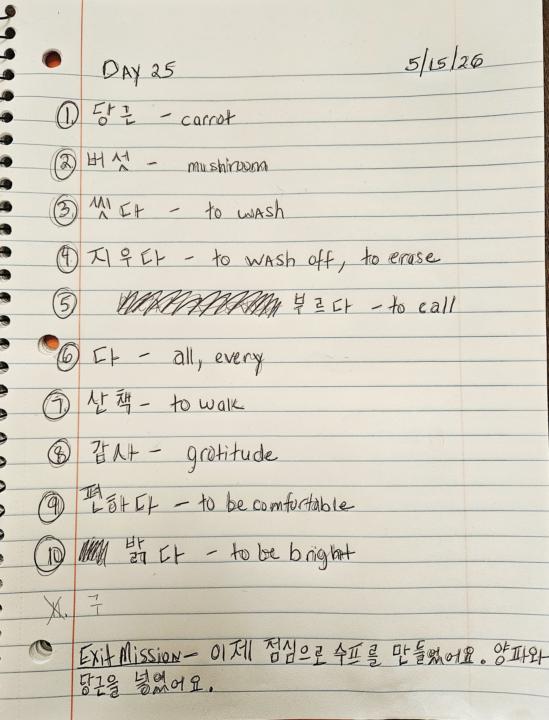 DAY 25 5/15/26
1. 당근 - carrot
2 버섯 - mushroom
3. 씻다 - to wash
4. 지우다 - to wash off, to erase
5 부르다 - to call
6 다 - all, every
7. 산책 - to walk
8 감사 - gratitude
9 편하다 - to be comfortable
10 밝다 - to be bright
구
Exit Mission - 이제 점심으로 수프를 만들었어요. 양파와
당근을 넣었어요.